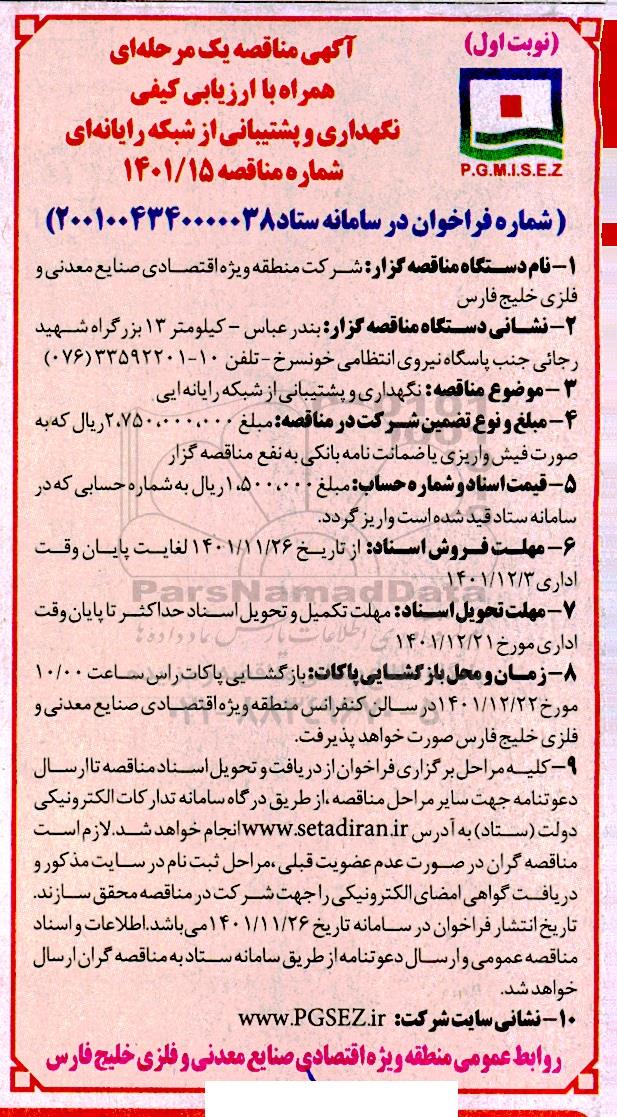 (نوبت اول)
آگهی مناقصه یک مرحله‌ای
همراه با ارزیابی کیفی
نگهداری و پشتیبانی از شبکه رایانه‌ای
شماره مناقصه ۱۴۰۱/۱۵
P.G.M.I.S.E.Z
(شماره فراخوان در سامانه ستاد ۲۰۰۱۰۰۴۳۴۰۰۰۰۰۳۸)
۱- نام دستگاه مناقصه گزار: شرکت منطقه ویژه اقتصادی صنایع معدنی و
فلزی خلیج فارس
۲- نشانی دستگاه مناقصه گزار: بندرعباس - کیلومتر ۱۳ بزرگراه شهید
رجائی جنب پاسگاه نیروی انتظامی خونسرخ - تلفن ۱۰-۳۳۵۹۲۲۰۱ (۰۷۶)
۳- موضوع مناقصه: نگهداری و پشتیبانی از شبکه رایانه ایی
۴- مبلغ و نوع تضمین شرکت در مناقصه: مبلغ ۲،۷۵۰،۰۰۰،۰۰۰ ریال که به
صورت فیش واریزی یا ضمانت نامه بانکی به نفع مناقصه گزار
۵- قیمت اسناد و شماره حساب: مبلغ ۱،۵۰۰،۰۰۰ ریال به شماره حسابی که در
سامانه ستاد قید شده است واریز گردد.
۶- مهلت فروش اسناد: از تاریخ ۱۴۰۱/۱۱/۲۶ لغایت پایان وقت
اداری ۱۴۰۱/۱۲/۳
۷- مهلت تحویل اسناد: مهلت تکمیل و تحویل اسناد حداکثر تا پایان وقت
اداری مورخ ۱۴۰۱/۱۲/۲۱
۸- زمان و محل بازگشایی پاکات: بازگشایی پاکات راس ساعت ۱۰/۰۰
مورخ ۱۴۰۱/۱۲/۲۲ در سالن کنفرانس منطقه ویژه اقتصادی صنایع معدنی و
فلزی خلیج فارس صورت خواهد پذیرفت.
۹- کلیه مراحل برگزاری فراخوان از دریافت و تحویل اسناد مناقصه تا ارسال
دعوتنامه جهت سایر مراحل مناقصه، از طریق درگاه سامانه تدارکات الکترونیکی
دولت (ستاد) به آدرس www.setadiran.ir انجام خواهد شد. لازم است
مناقصه گران در صورت عدم عضویت قبلی، مراحل ثبت نام در سایت مذکور و
دریافت گواهی امضای الکترونیکی را جهت شرکت در مناقصه محقق سازند.
تاریخ انتشار فراخوان در سامانه تاریخ ۱۴۰۱/۱۱/۲۶ می‌باشد. اطلاعات و اسناد
مناقصه عمومی و ارسال دعوتنامه از طریق سامانه ستاد به مناقصه گران ارسال
خواهد شد.
۱۰- نشانی سایت شرکت: www.PGSEZ.ir
روابط عمومی منطقه ویژه اقتصادی صنایع معدنی و فلزی خلیج فارس
ParsNamadData